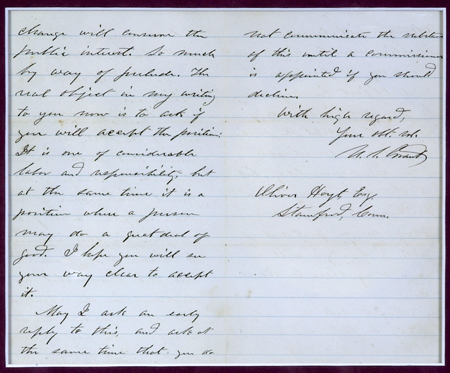 change will conserve the
public interest. So much
by way of prelude. The
real object in my writing
to you now is to ask if
you will accept the position.
It is one of considerable
labor and responsibility, but
at the same time it is a
position where a person
may do a great deal of
good. I hope you will see
your way clear to accept
it.
May I ask an early
reply to this, and ask at
the same time that you do
not communicate the
of this until a commissioner
is appointed if you should
decline.
With high regard,
Your obt. svt.
U. S. Grant
Oliver Hoyt, Esq.
Stamford, Conn.